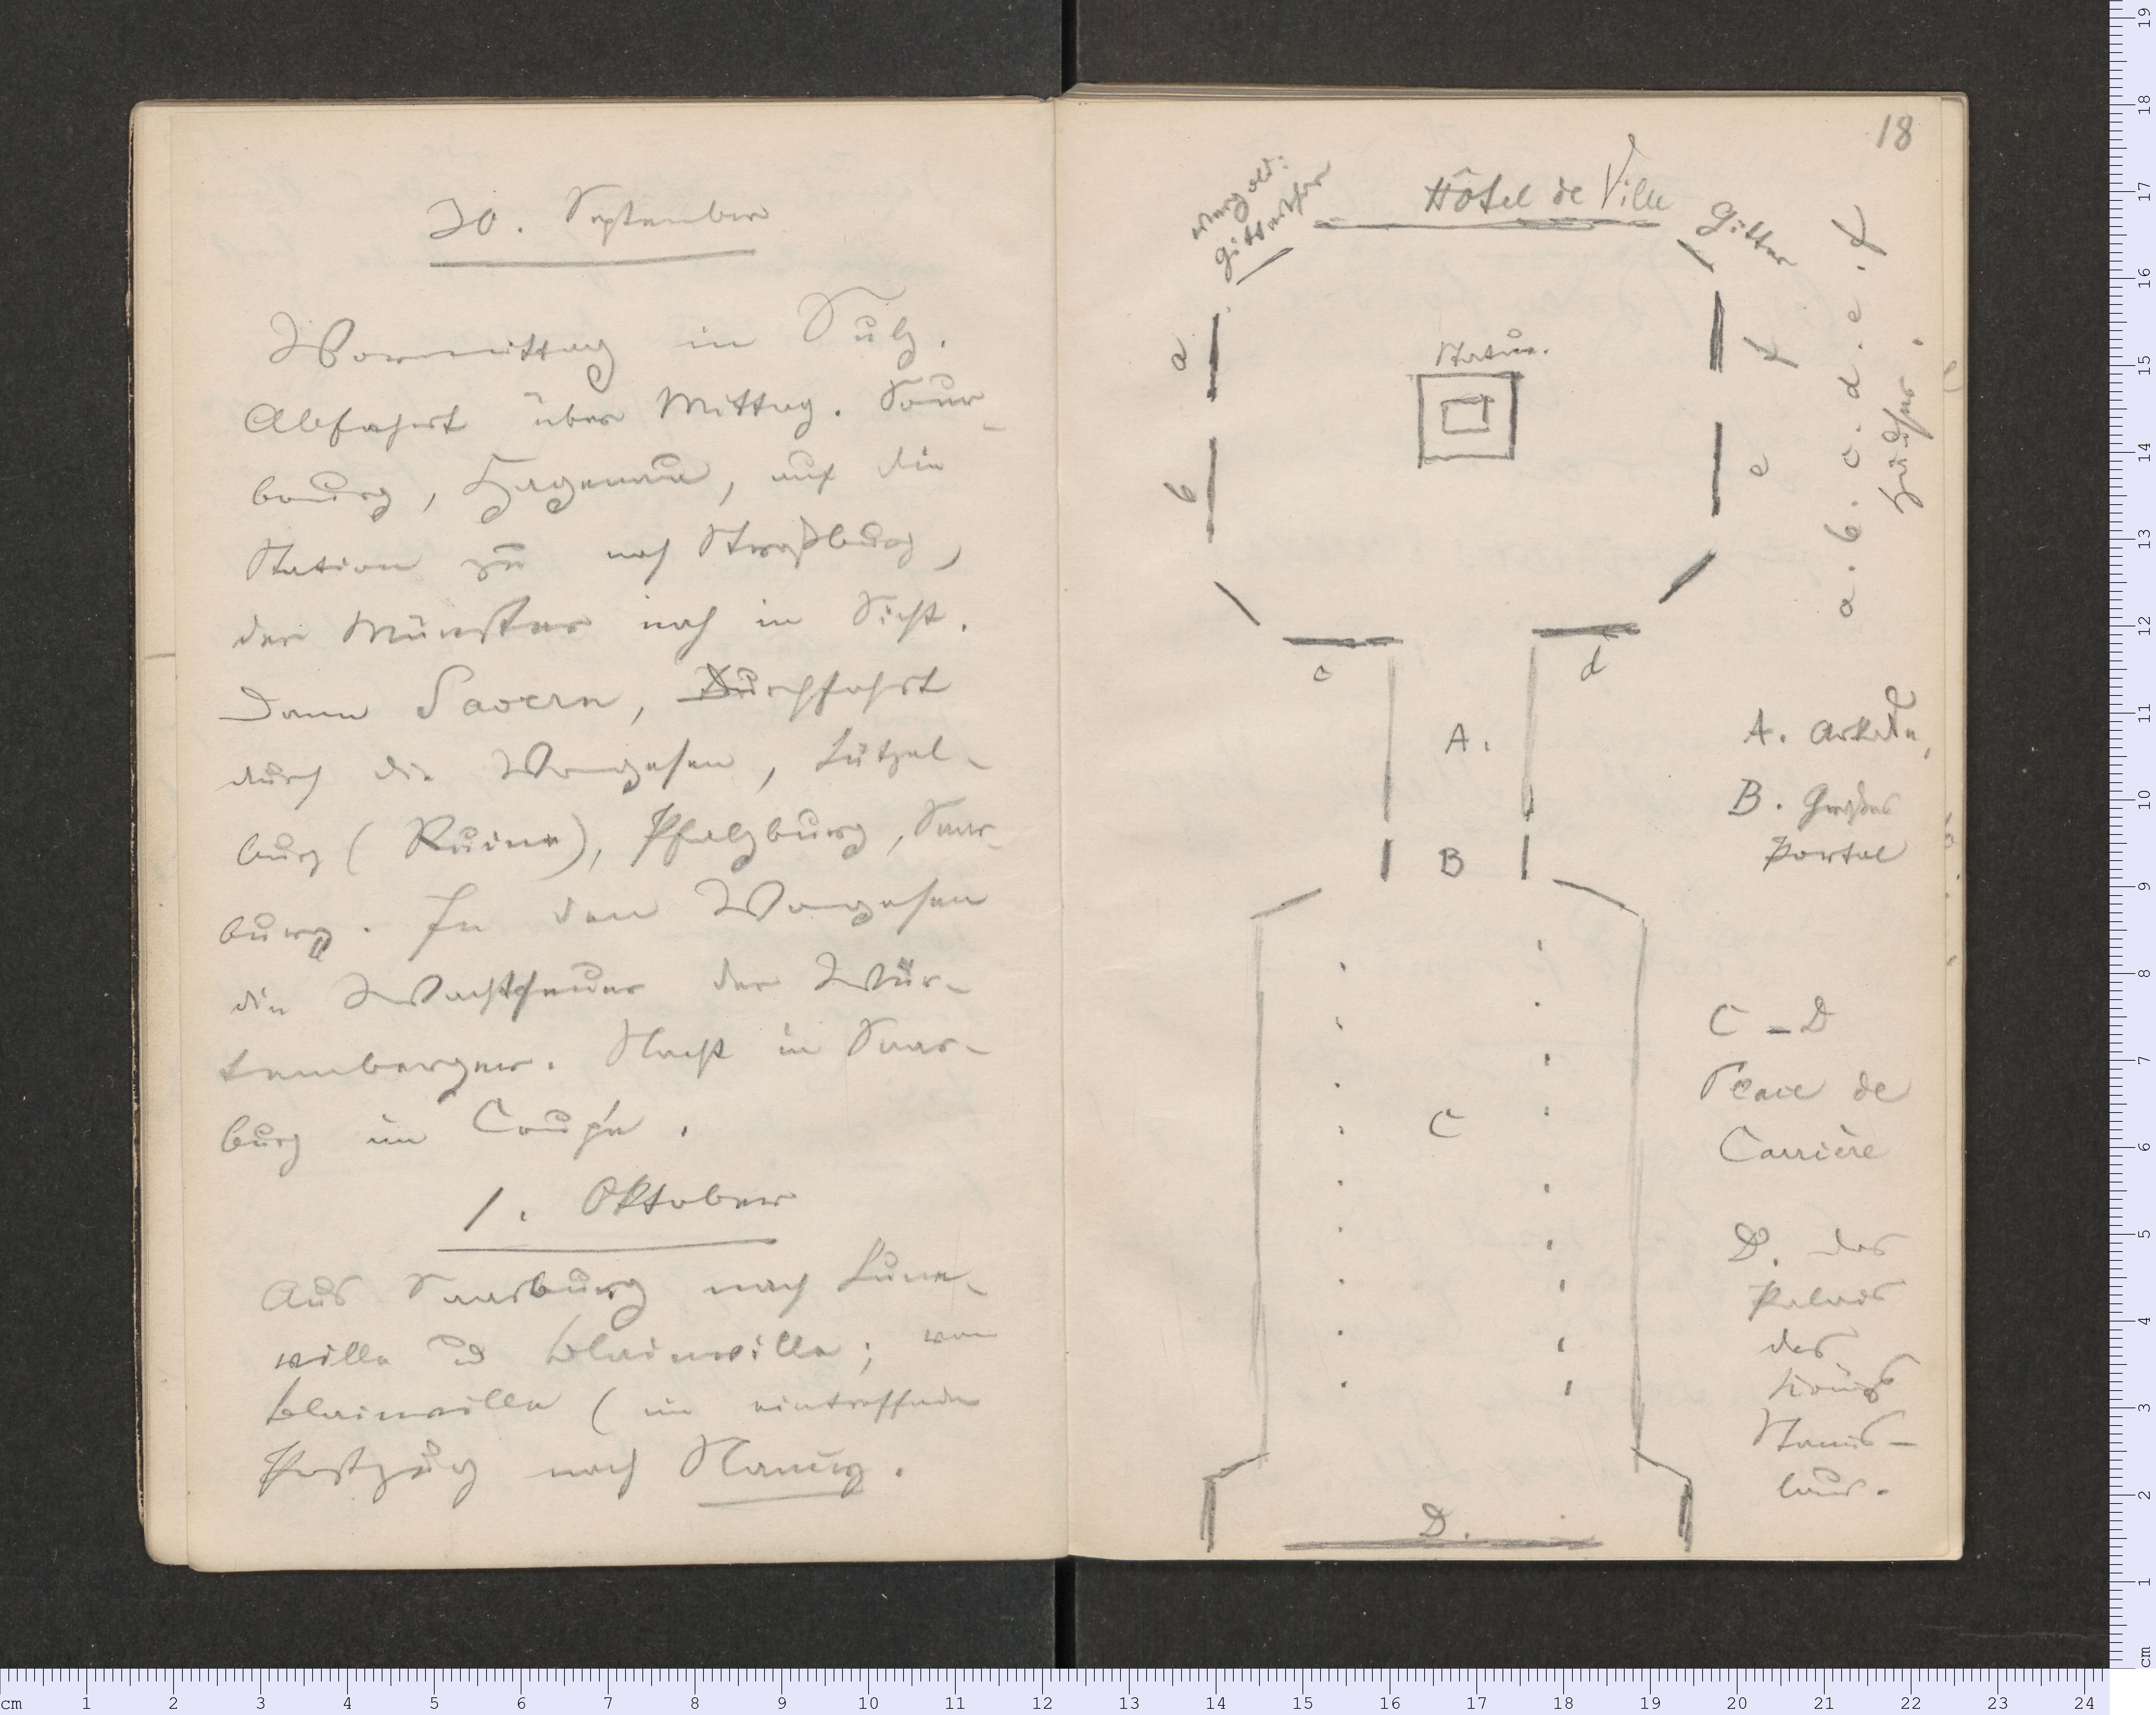 30. September
Vormittag in Sulz.
Abfahrt über Mittag. Sour-
bourg, Hagenau, auf die
Station zu nach Straßburg,
der Münster noch in Sicht.
Dann Savern, Durchfahrt
durch die Vogesen, Lützel-
burg (Ruine), Pfalzburg, Saar-
burg. In den Vogesen
die Wachtfeuer der Wür-
temberger. Nacht in Saar-
burg im Coupé.
1. Oktober
Aus Saarburg nach Lune-
ville und Blainville; von
Blainville (im eintreffenden
Postzug nach Nancy.
18
Hôtel de Ville
vergold:
Gitter
Statue.
a
b
c
d
e
f
a. b. c. d. e. f
Häuser.
A.
B
C
D.
A. Arkade,
B. Großes
Portal
C - D
Place de
Carrière
D. das
Palais
des
Königs
Stanis-
laus.